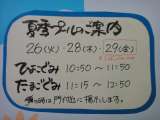 夏季プールのご案内
26(火)・28(木)・29(金)
ひよこぐみ 10:50〜11:50
たまごぐみ 11:15〜12:50
門付近に掲示します。